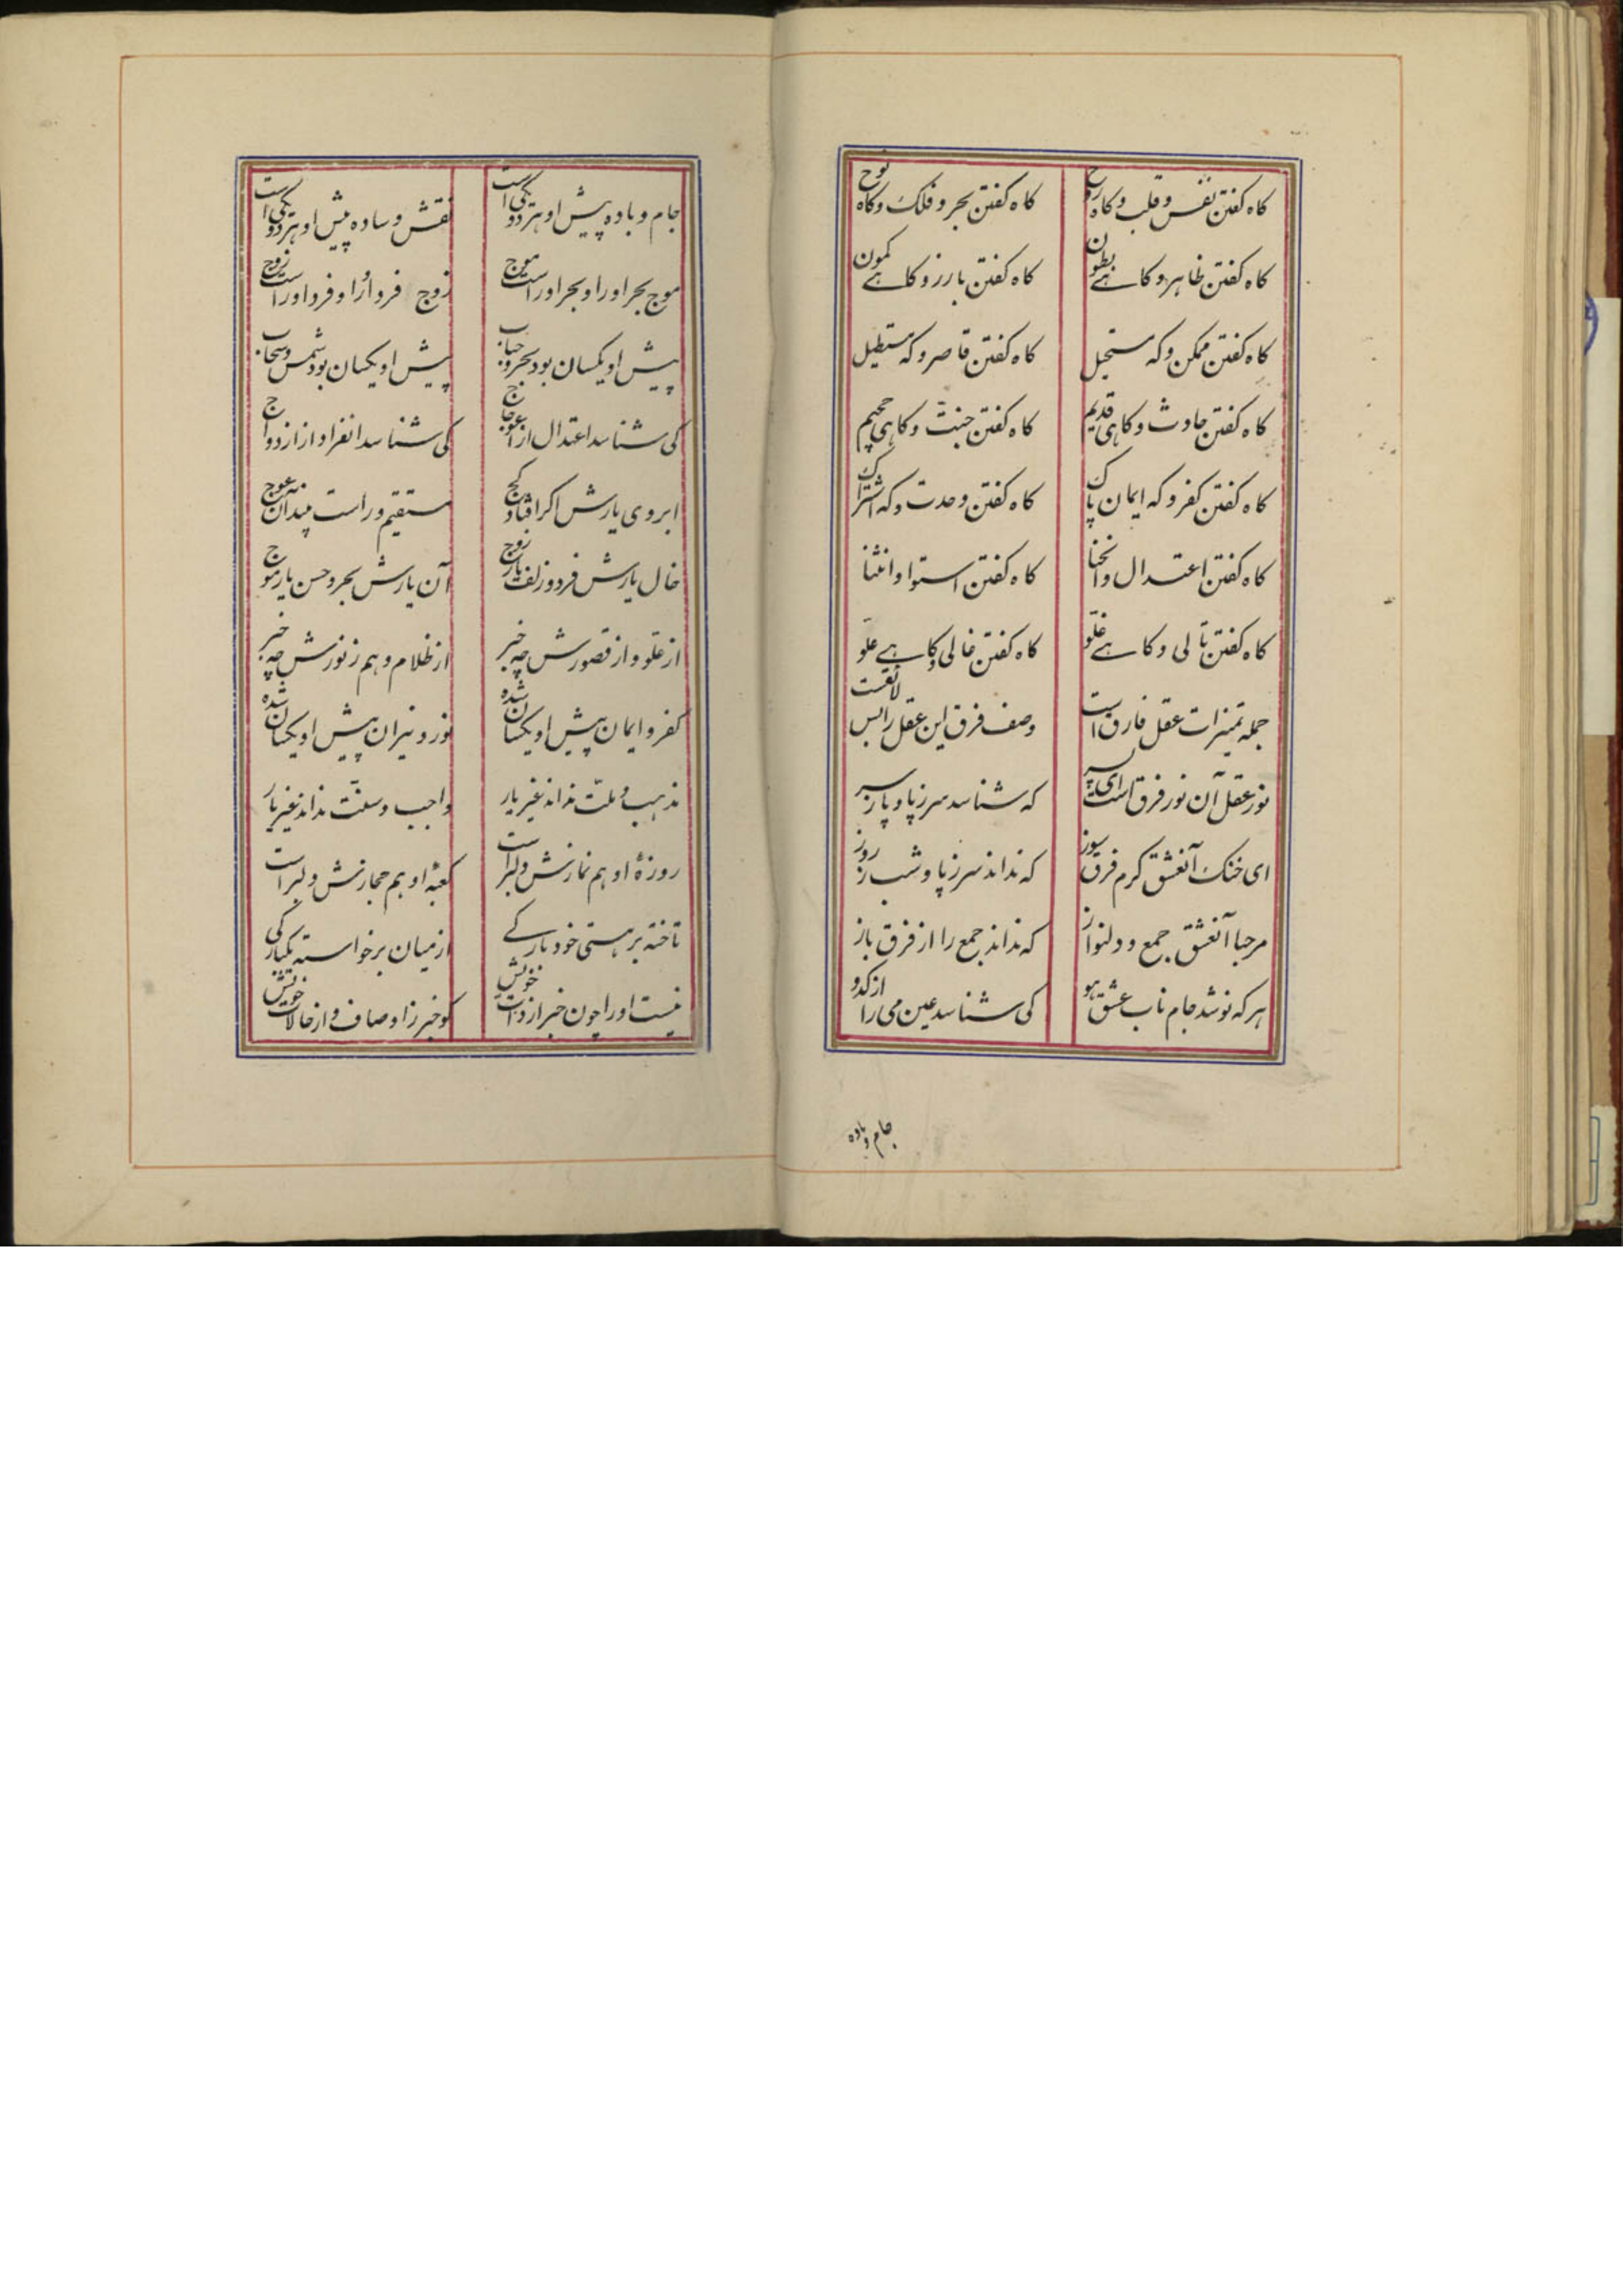 کاه کفتن نفس و قلب و کاه روح کاه کفتن بحر و فلک و کاه نوح
کاه کفتن ظاهر و کاهے بطون کاه کفتن بارز و کاهے کمون
کاه کفتن ممکن و که مستحیل کاه کفتن قاصر و که مستطیل
کاه کفتن حادث و کاهی قدیم کاه کفتن جنت و کاهی جحیم
کاه کفتن کفر و که ایمان پاک کاه کفتن وحدت و که اشتراک
کاه کفتن اعتدال و انحنا کاه کفتن استوا و انثنا
کاه کفتن تالی و کاهے غلو کاه کفتن غالی و کاهے علو
جمله تمیزات عقل فارق است وصف فرق این عقل را بس لایقست
نور عقل آن نور فرق است ای پسر که شناسد سر ز پا و پا ز سر
ای خنک آنعشق کرم فرق سوز که نداند سر ز پا و شب ز روز
مرحبا آنعشق جمع و دلنواز که نداند جمع را از فرق باز
هر که نوشد جام ناب عشق هو کی شناسد عین می را از کدو
جام و باده
جام و باده پیش او هر دو یکی است نقش و ساده پیش او هر دو یکی است
موج بحر او را و بحر او راست موج زوج فرد او را و فرد او راست زوج
پیش او یکسان بود بحر و حباب پیش او یکسان بود شمس و سحاب
کی شناسد اعتدال از اعوجاج کی شناسد انفراد از ازدواج
ابروی یارش اکر افتاد کج مستقیم و راست بیند آن عوج
خال یارش فرد و زلف یار زوج آن یارش بحر و حسن یار موج
از علو و از قصورش چه خبر از ظلام و هم ز نورش چه خبر
کفر و ایمان پیش او یکسان شده نور و نیران پیش او یکسان شده
مذهب و ملت نداند غیر یار واجب و سنت نداند غیر یار
روزهٔ او هم نمازش دلبر است کعبهٔ او هم حجازش دلبر است
تاخته بر هستی خود بارکے از میان برخواسته یکبارکی
نیست او را چون خبر از ذات خویش کو خبر ز اوصاف و از حالات خویش